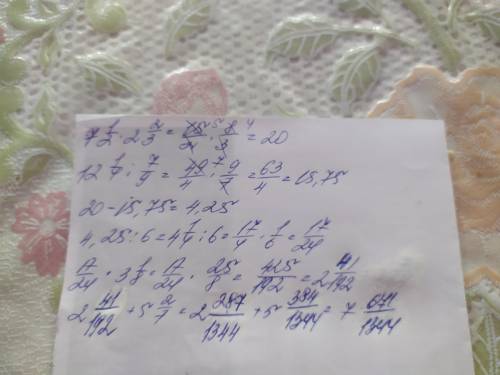 7 1/2 : 2 2/3 = 15/2 · 8/3 = 20
12 1/4 : 7/9 = 49/4 · 9/7 = 63/4 = 15,75
20 - 15,75 = 4,25
4,25 : 6 = 4 1/4 : 6 = 17/4 · 1/6 = 17/24
17/24 · 3 1/8 = 17/24 · 25/8 = 425/192 = 2 41/192
2 41/192 + 5 2/7 = 2 287/1344 + 5 384/1344 = 7 671/1344